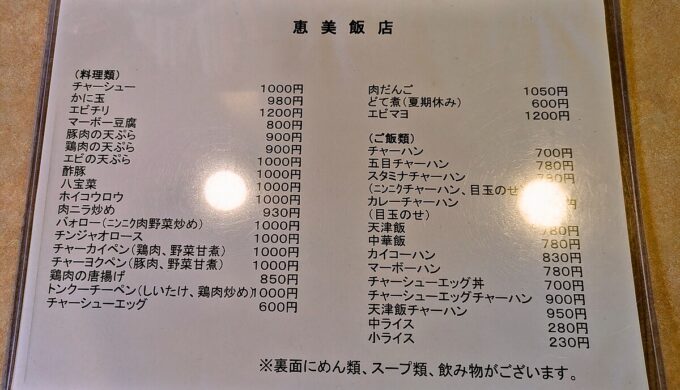 恵美飯店
(料理類)
チャーシュー 1000円
かに玉 980円
エビチリ 1200円
マーボー豆腐 800円
豚肉の天ぷら 900円
鶏肉の天ぷら 900円
エビの天ぷら 1000円
酢豚 1000円
八宝菜 1000円
ホイコウロウ 1000円
肉ニラ炒め 930円
バォロー(ニンニク肉野菜炒め) 1000円
チンジャオロース 1000円
チャーカイペン(鶏肉、野菜甘煮) 1000円
チャーヨクペン(豚肉、野菜甘煮) 1000円
鶏肉の唐揚げ 850円
トンクーチーペン(しいたけ、鶏肉炒め) 1000円
チャーシューエッグ 600円
肉だんご 1050円
どて煮(夏期休み) 600円
エビマヨ 1200円
(ご飯類)
チャーハン 700円
五目チャーハン 780円
スタミナチャーハン 780円
(ニンニクチャーハン、目玉のせ)
カレーチャーハン
(目玉のせ)
天津飯 780円
中華飯 780円
カイコーハン 830円
マーボーハン 780円
チャーシューエッグ丼 700円
チャーシューエッグチャーハン 900円
天津飯チャーハン 950円
中ライス 280円
小ライス 230円
※裏面にめん類、スープ類、飲み物がございます。